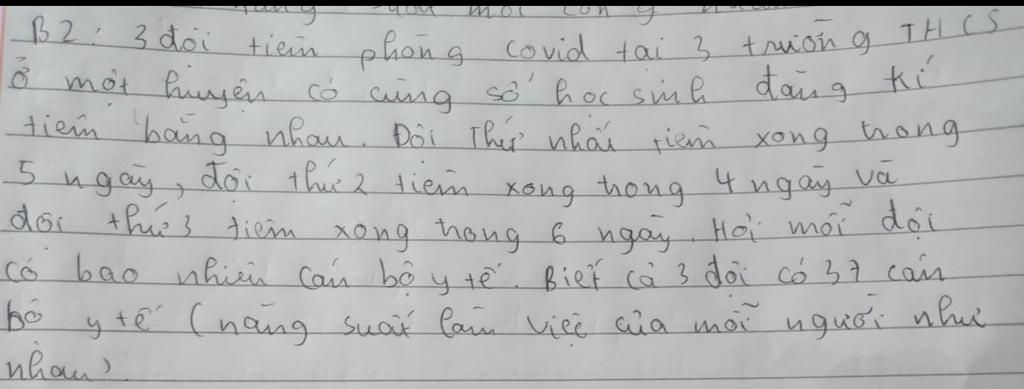 B2: 3 đội tiêm phòng covid tại 3 trường THCS
ở một huyện có cùng số học sinh đăng kí
tiêm bằng nhau. Đội thứ nhất tiêm xong trong
5 ngày, đội thứ 2 tiêm xong trong 4 ngày và
đội thứ 3 tiêm xong trong 6 ngày. Hỏi mỗi đội
có bao nhiêu cán bộ y tế. Biết cả 3 đội có 37 cán
bộ y tế (năng suất làm việc của mỗi người như
nhau)